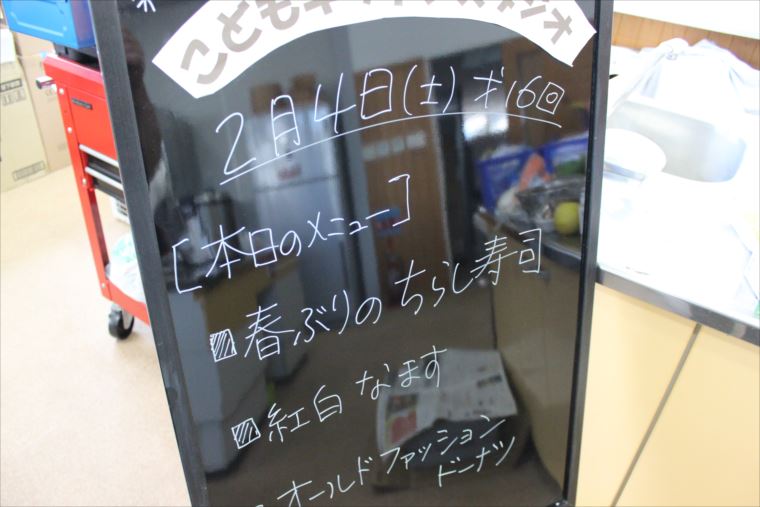 こどもキッ
2月4日(土) 才16回
[本日のメニュー]
春ぶりの ちらし寿司
紅白 なます
オールドファッション
ドーナツ